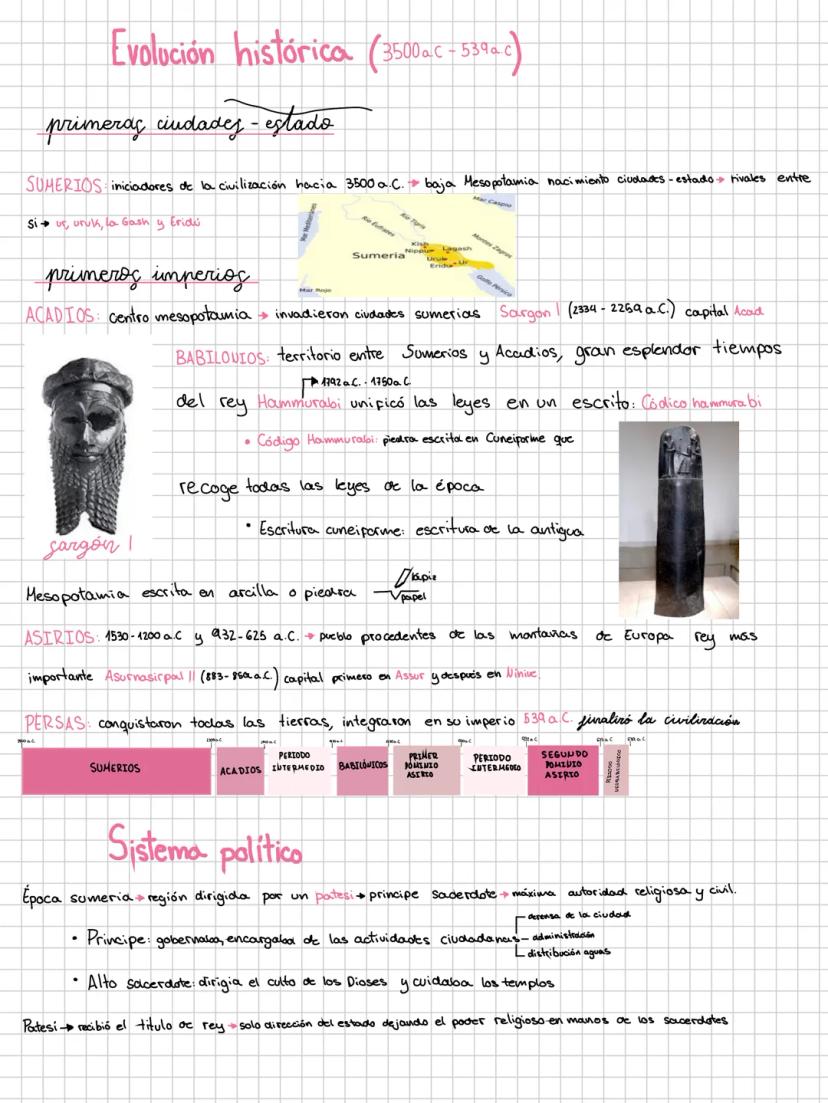 Evolución histórica (3500a.C - 539a.C)
primeras ciudades - estado
SUMERIOS: iniciadores de la civilización hacia 3500 a.C. → baja Mesopotamia nacimiento ciudades - estado → rivales entre
si → ur, uruk, la Gash y Eridú
Mar Mediterráneo
Mar Caspio
Río Tigris
Río Eufrates
Montes Zagros
Sumeria
Kish
Nippur
Lagash
Uruk
Ur
Eridu
Golfo Pérsico
Mar Rojo
primeros imperios
ACADIOS: centro mesopotamia → invadieron ciudades sumerias Sargon I (2334 - 2269 a.C.) capital Acad
BABILONIOS: territorio entre Sumerios y Acadios, gran esplendor tiempos
→ 1792 a.C. - 1750 a.C
del rey Hammurabi unificó las leyes en un escrito: Códico hammurabi
• Código Hammurabi: piedra escrita en Cuneiforme que
recoge todas las leyes de la época
• Escritura cuneiforme: escritura de la antigua
sargón I
Mesopotamia escrita en arcilla o piedra
lápiz
papel
ASIRIOS: 1530-1200 a.C y 932-625 a.C. → pueblo procedentes de las montañas de Europa rey más
importante Asurnasirpal II (883-859 a.C.) capital primero en Assur y después en Nínive.
PERSAS: conquistaron todas las tierras, integraron en su imperio 539 a.C. finalizó la civilización
SUMERIOS
ACADIOS
PERIODO INTERMEDIO
BABILÓNICOS
PRIMER DOMINIO ASIRIO
PERIODO INTERMEDIO
SEGUNDO DOMINIO ASIRIO
Sistema político
Época sumeria → región dirigida por un patesi → principe sacerdote → máxima autoridad religiosa y civil.
defensa de la ciudad
• Principe: gobernaba, encargaba de las actividades ciudadanas - administración
distribución aguas
• Alto sacerdote: dirigia el culto de los Dioses y cuidaba los templos
Patesi → recibió el titulo de rey → solo dirección del estado dejando el poder religioso en manos de los sacerdotes